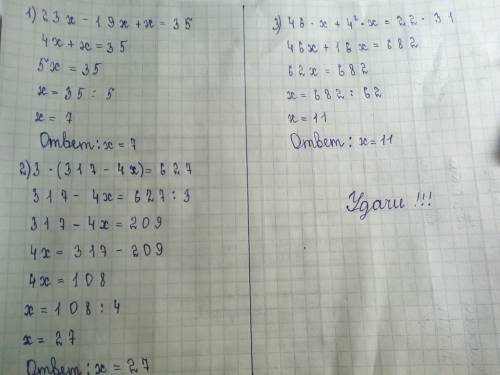 1) 23x - 19x + x = 35
4x + x = 35
5x = 35
x = 35 : 5
x = 7
Ответ: x = 7
2) 3 · (317 - 4x) = 627
317 - 4x = 627 : 3
317 - 4x = 209
4x = 317 - 209
4x = 108
x = 108 : 4
x = 27
Ответ: x = 27
3) 46 · x + 4² · x = 22 · 31
46x + 16x = 682
62x = 682
x = 682 : 62
x = 11
Ответ: x = 11
Удачи !!!